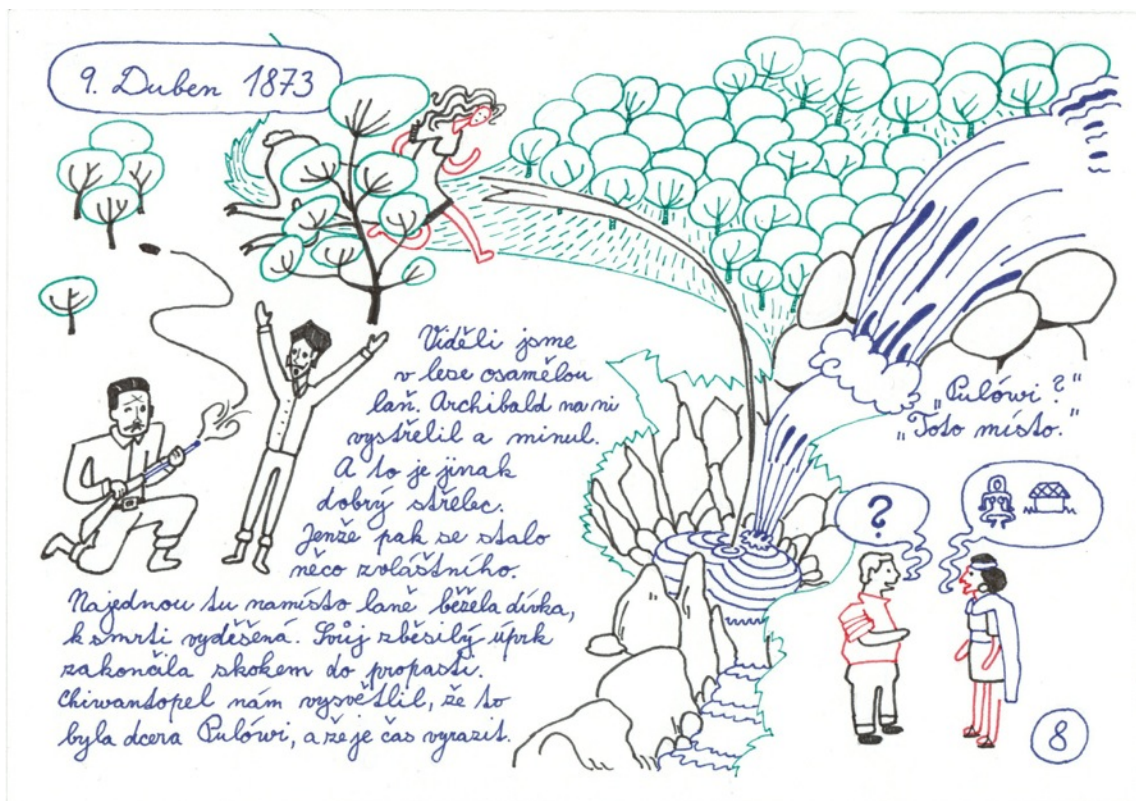 9. Duben 1873
Viděli jsme
v lese osamělou
laň. Archibald na ni
vystřelil a minul.
A to je jinak
dobrý střelec.
Jenže pak se stalo
něco zvláštního.
Najednou tu namísto laně běžela dívka,
k smrti vyděšená. Svůj zběsilý úprk
zakončila skokem do propasti.
Chiwantopel nám vysvětlil, že to
byla dcera Pulówi, a že je čas vyrazit.
„Pulówi?“
„Toto místo.“
?
8